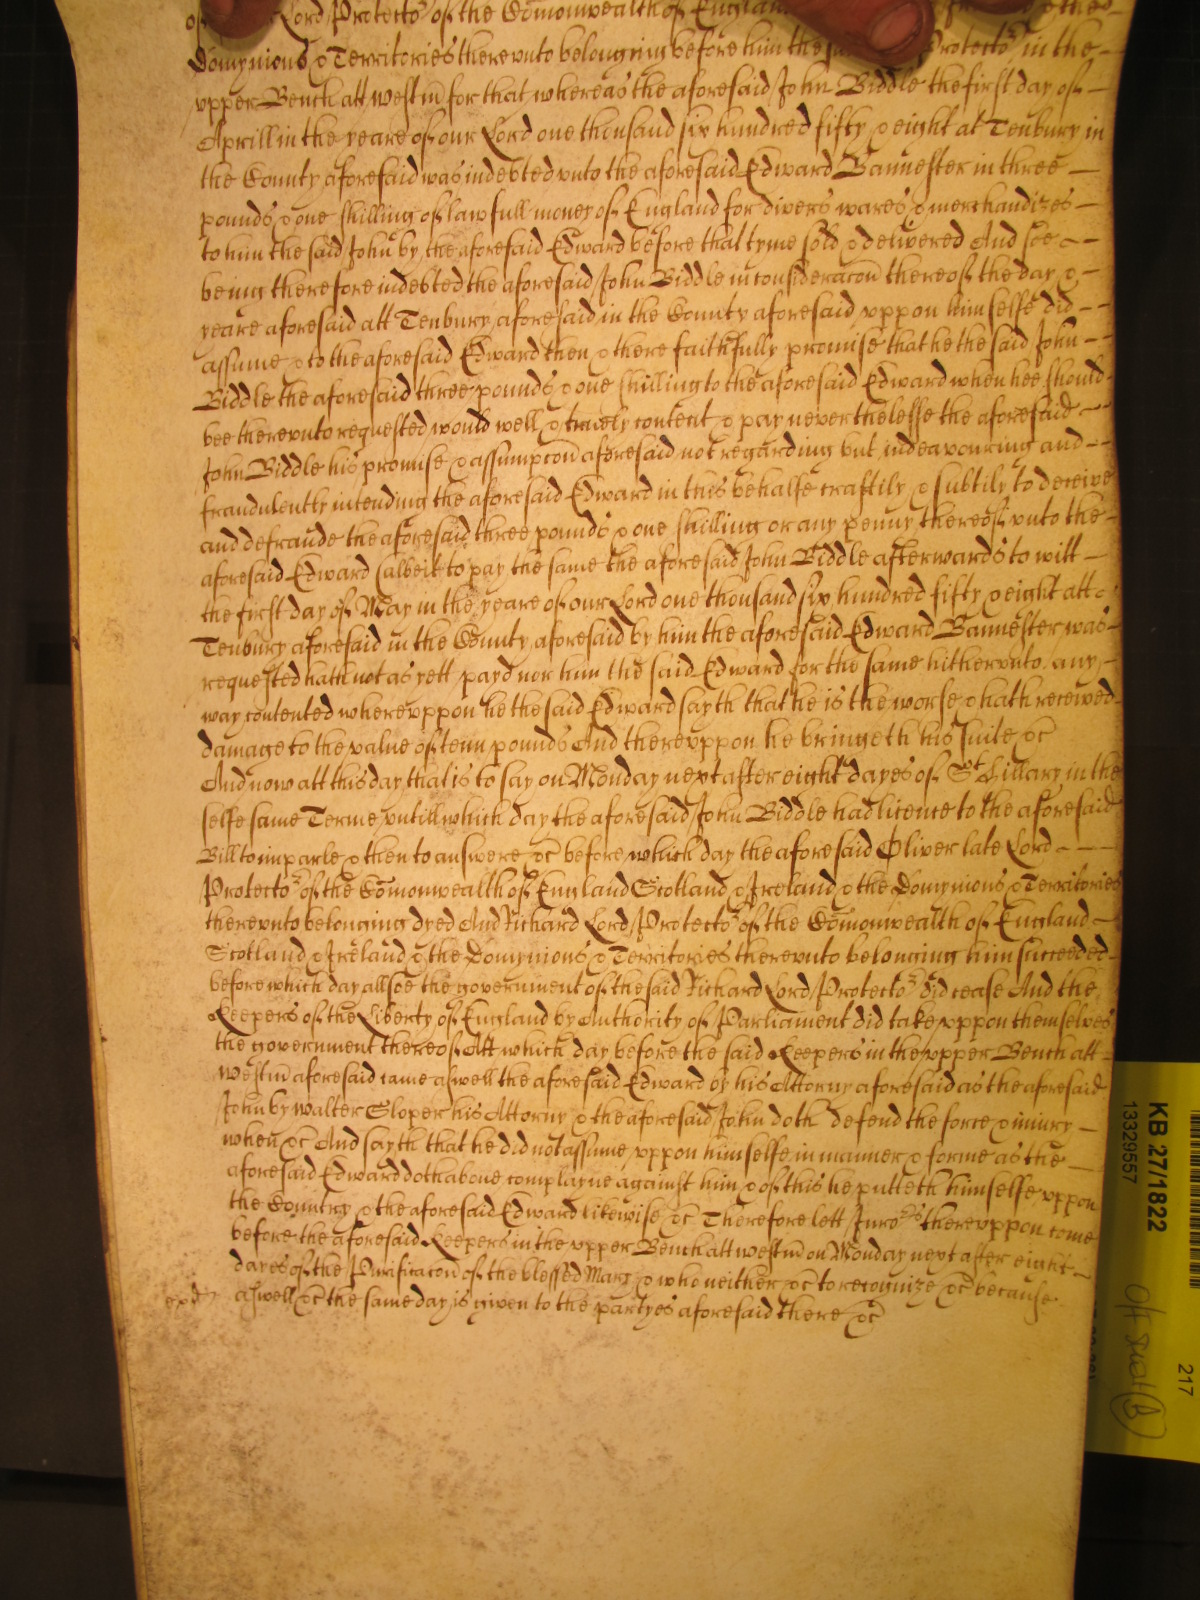 Lord Protectoʳ of the Com̄onwealth of England
Domynions & Territories therevnto belonging before him the Protectoʳ in the
vpper Bench att westm̄ for that whereas the aforesaid John Biddle the first day of
Aprill in the yeare of our Lord one thousand six hundred fifty & eight at Tenbury in
the County aforesaid was indebted vnto the aforesaid Edward Bannester in three
pounds & one shilling of lawfull money of England for divers wares & merchandizes
to him the said John by the aforesaid Edward before that tyme sold & delivered And soe
being therefore indebted the aforesaid John Biddle in consideracon̄ thereof the day &
yeare aforesaid att Tenbury aforesaid in the County aforesaid vppon himselfe did
assume & to the aforesaid Edward then & there faithfully promise that he the said John
Biddle the aforesaid three pounds & one shilling to the aforesaid Edward when hee should
bee therevnto requested would well & truely content & pay neverthelesse the aforesaid
John Biddle his promise & assumpcon̄ aforesaid not regarding but indeavouring and
fraudulently intending the aforesaid Edward in this behalfe craftily & subtily to deceive
and defraude the aforesaid three pounds & one shilling or any penny thereof vnto the
aforesaid Edward (albeit to pay the same the aforesaid John Biddle afterwards to witt
the first day of May in the yeare of our Lord one thousand six hundred fifty & eight att
Tenbury aforesaid in the County aforesaid by him the aforesaid Edward Bannester was
requested hath not as yett payd nor him the said Edward for the same hithervnto any
way contented wherevppon he the said Edward sayth that he is the worse & hath received
damage to the value of tenn pounds And therevppon he bringeth his suite &c̄
And now att this day that is to say on Monday next after eight dayes of Sᵗ Hillary in the
selfe same Terme vntill which day the aforesaid John Biddle had licence to the aforesaid
Bill to imparle & then to answere &c̄ before which day the aforesaid Oliver late Lord
Protectoʳ of the Com̄onwealth of England Scotland & Ireland & the Domynions & Territories
therevnto belonging dyed And Richard Lord Protectoʳ of the Com̄onwealth of England
Scotland & Ireland & the Domynions & Territories therevnto belonging him succeeded
before which day allsoe the government of the said Richard Lord Protectoʳ did cease And the
Keepers of the Liberty of England by Authority of Parliament did take vppon themselves
the government thereof Att which day before the said Keepers in the vpper Bench att
westm̄ aforesaid came aswell the aforesaid Edward by his Attorny aforesaid as the aforesaid
John by walter Sloper his Attorny & the aforesaid John doth defend the force & iniury
when &c̄ And sayth that he did not assume vppon himselfe in manner & forme as the
aforesaid Edward doth above complayne against him & of this he putteth himselfe vppon
the Country & the aforesaid Edward likewise &c̄ Therefore lett Juroʳˢ therevppon come
before the aforesaid Keepers in the vpper Bench att westm̄ on Monday next after eight
dayes of the Purificacon̄ of the blessed Mary & who neither &c̄ to recognize &c̄ because
aswell &c̄ the same day is given to the partyes aforesaid there &c̄
KB 27/1822
13329557
217